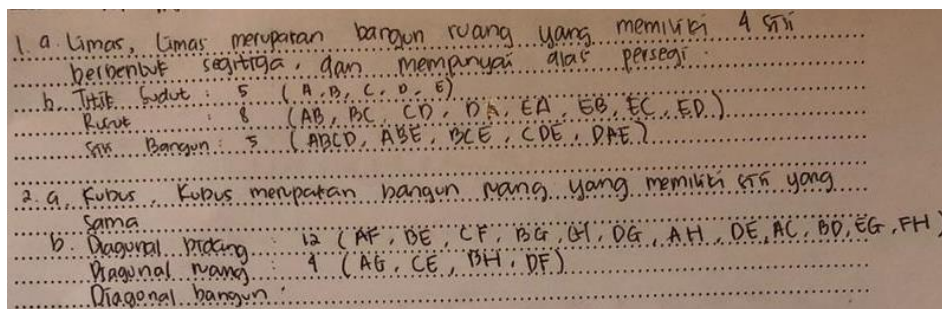 1. a. Limas, Limas merupakan bangun ruang yang memiliki 4 sisi
berbentuk segitiga, dan mempunyai alas persegi.
b. Titik Sudut : 5 (A, B, C, D, E)
Rusuk : 8 (AB, BC, CD, DA, EA, EB, EC, ED)
Sisi Bangun : 5 (ABCD, ABE, BCE, CDE, DAE)
2. a. Kubus, Kubus merupakan bangun ruang yang memiliki sisi yang
sama
b. Diagonal bidang : 12 (AF, BE, CF, BG, CH, DG, AH, DE, AC, BD, EG, FH)
Diagonal ruang : 4 (AG, CE, BH, DF)
Diagonal bangun :